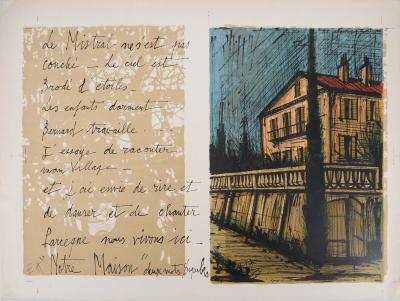 Le Mistral ne s'est pas
couché _ Le ciel est
Brodé d'étoiles.
Les enfants dorment
Bernard travaille.
J'essaye de raconter
mon Village _
et j'ai envie de rire et
de danser et de chanter
parceque nous vivons ici _
"Notre Maison" deux mots